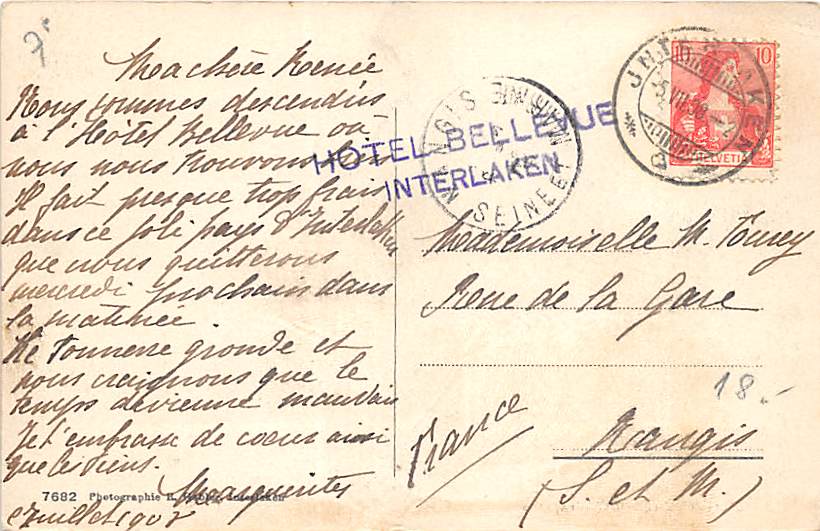 Ma chère Renée
Nous sommes descendus
à l'Hôtel Bellevue où
nous nous trouvons bien
Il fait presque trop frais
dans ce joli pays d'Interlaken
que nous quitterons
mercredi prochain dans
la matinée.
Le Tonnerre gronde et
nous craignons que le
temps devienne mauvais
Je t'embrasse de coeur ainsi
que les tiens.
Marguerite
Juillet 190
7682 Photographie R. Gabler, Interlaken
HOTEL BELLEVUE
INTERLAKEN
NANGIS
SEINE ET MARNE
INTERLAKEN
10 10
HELVETIA
Mademoiselle M.
Rue de la Gare
18.-
Nangis
(S. et M.)
France